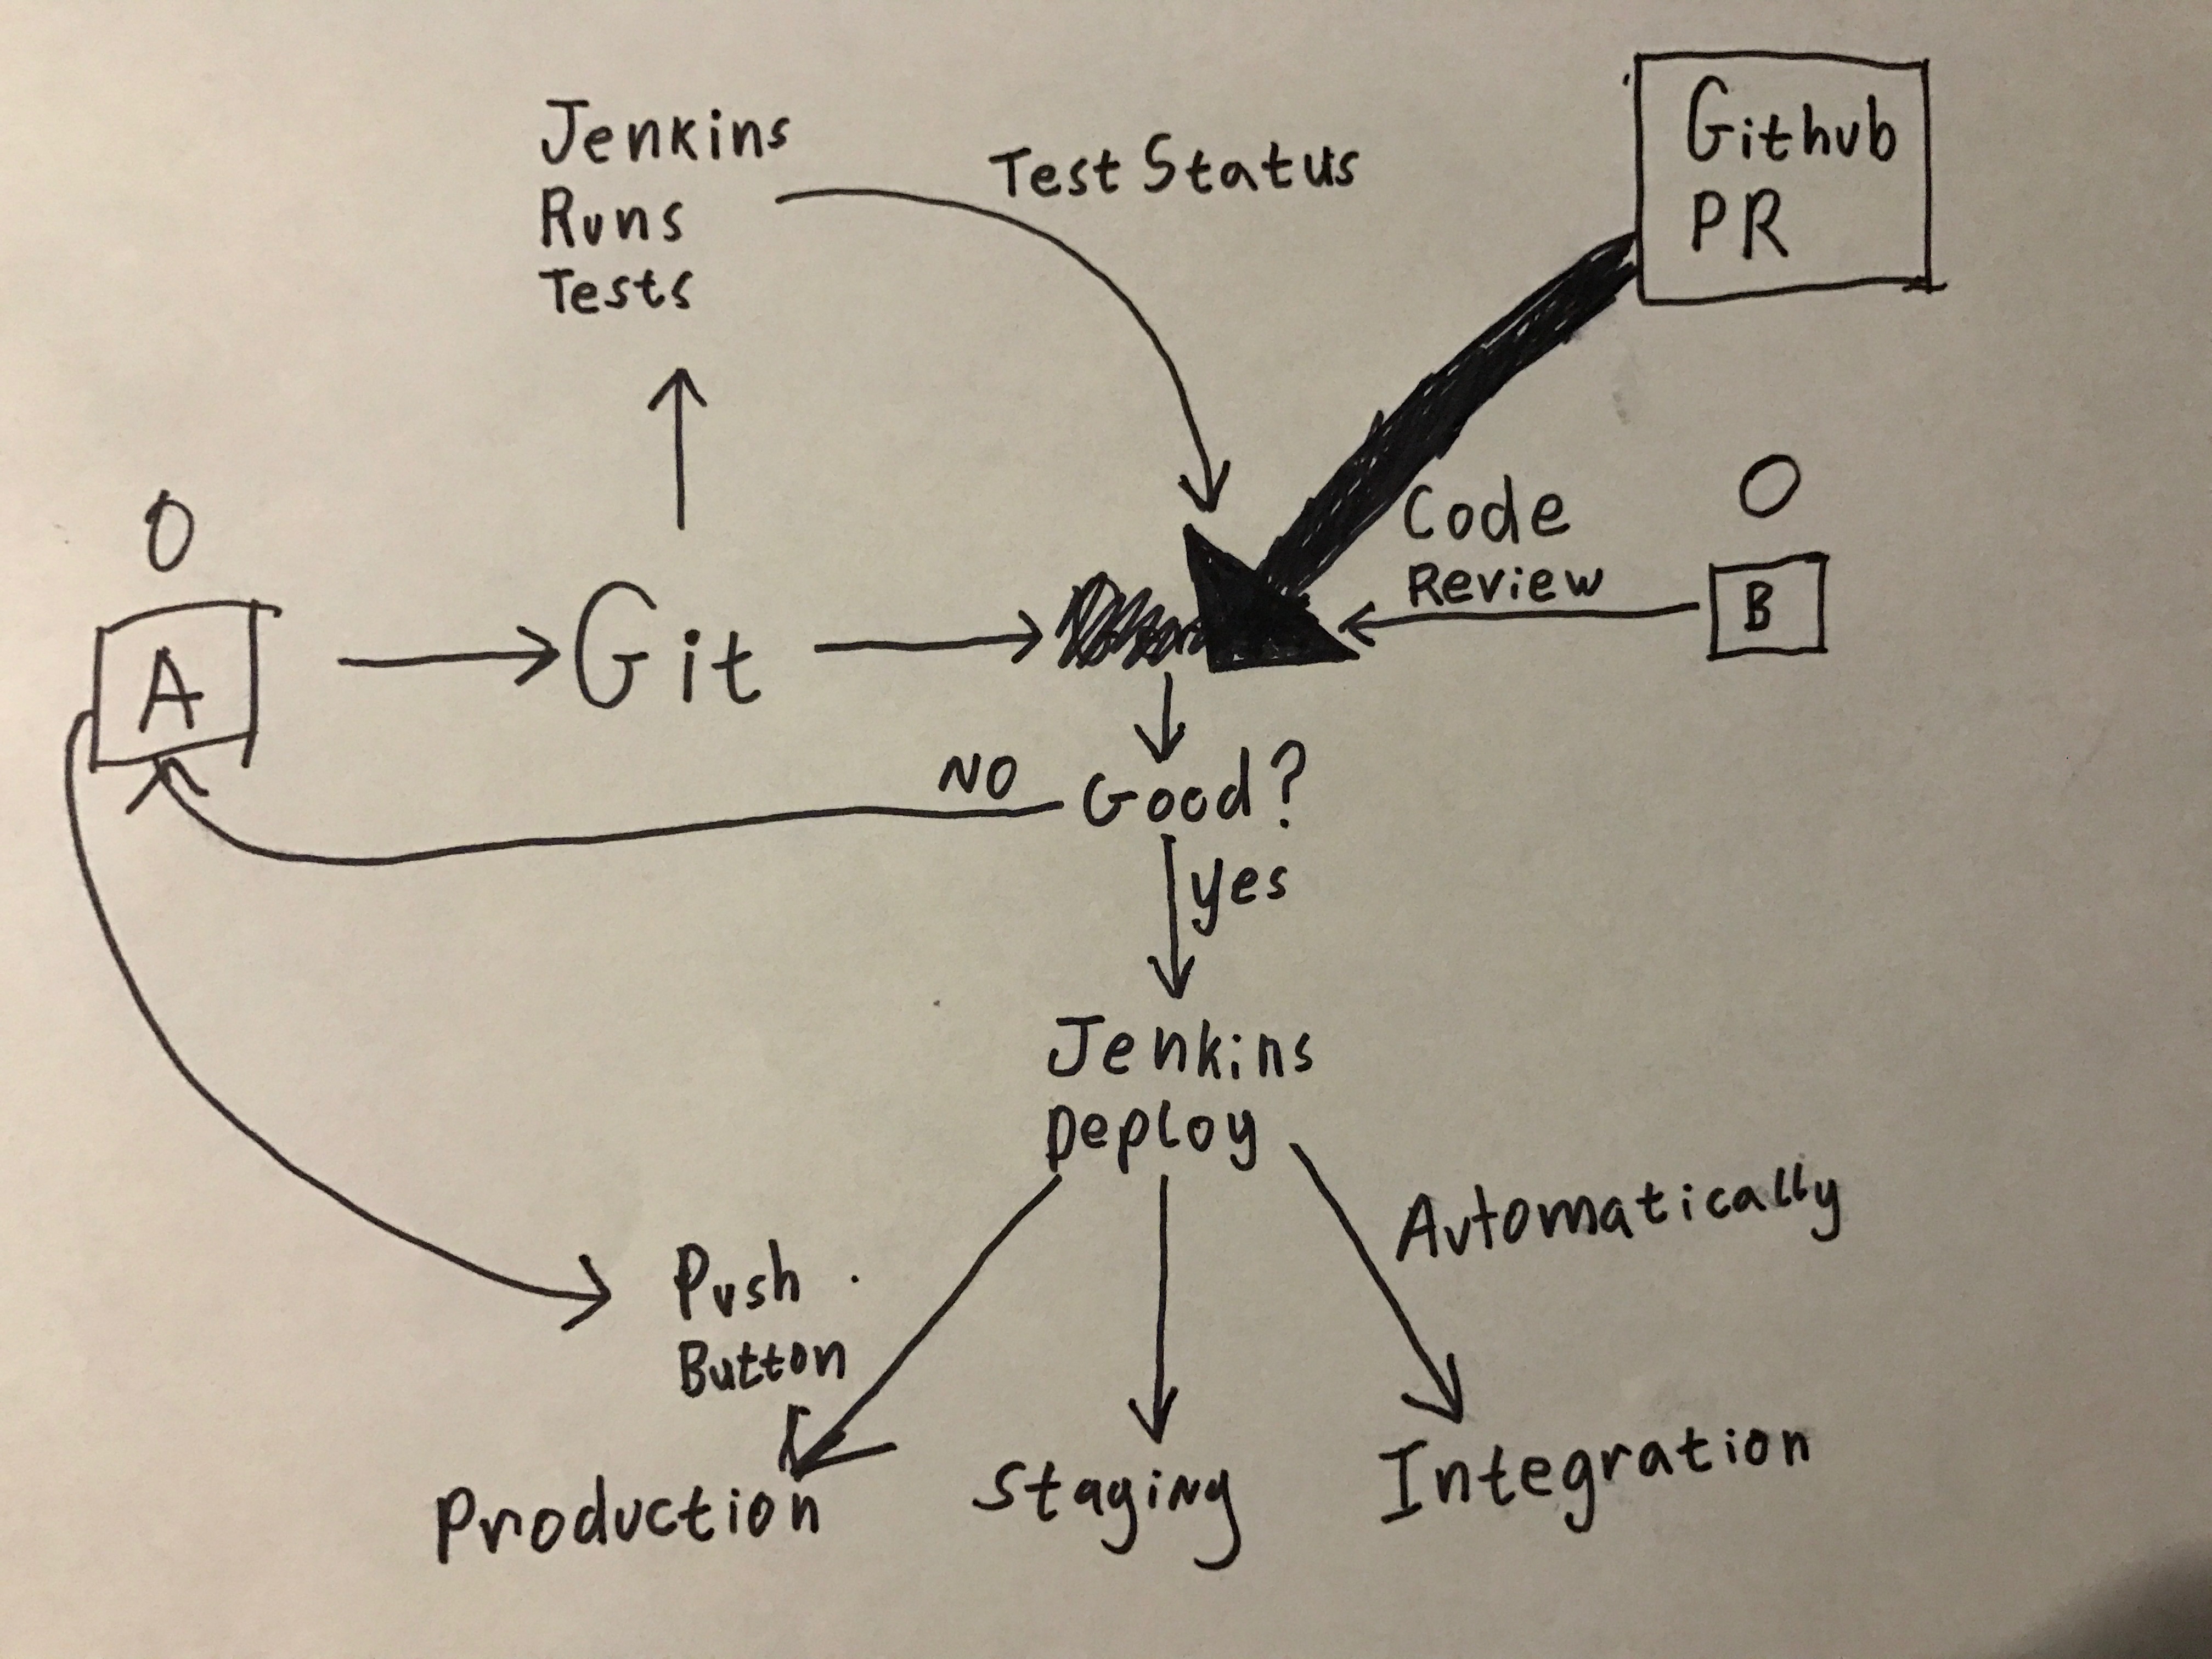 Jenkins
Runs
Tests
Test Status
Github
PR
Code
Review
A
Git
B
NO
Good?
yes
Jenkins
Deploy
Automatically
Push
Button
Production
Staging
Integration